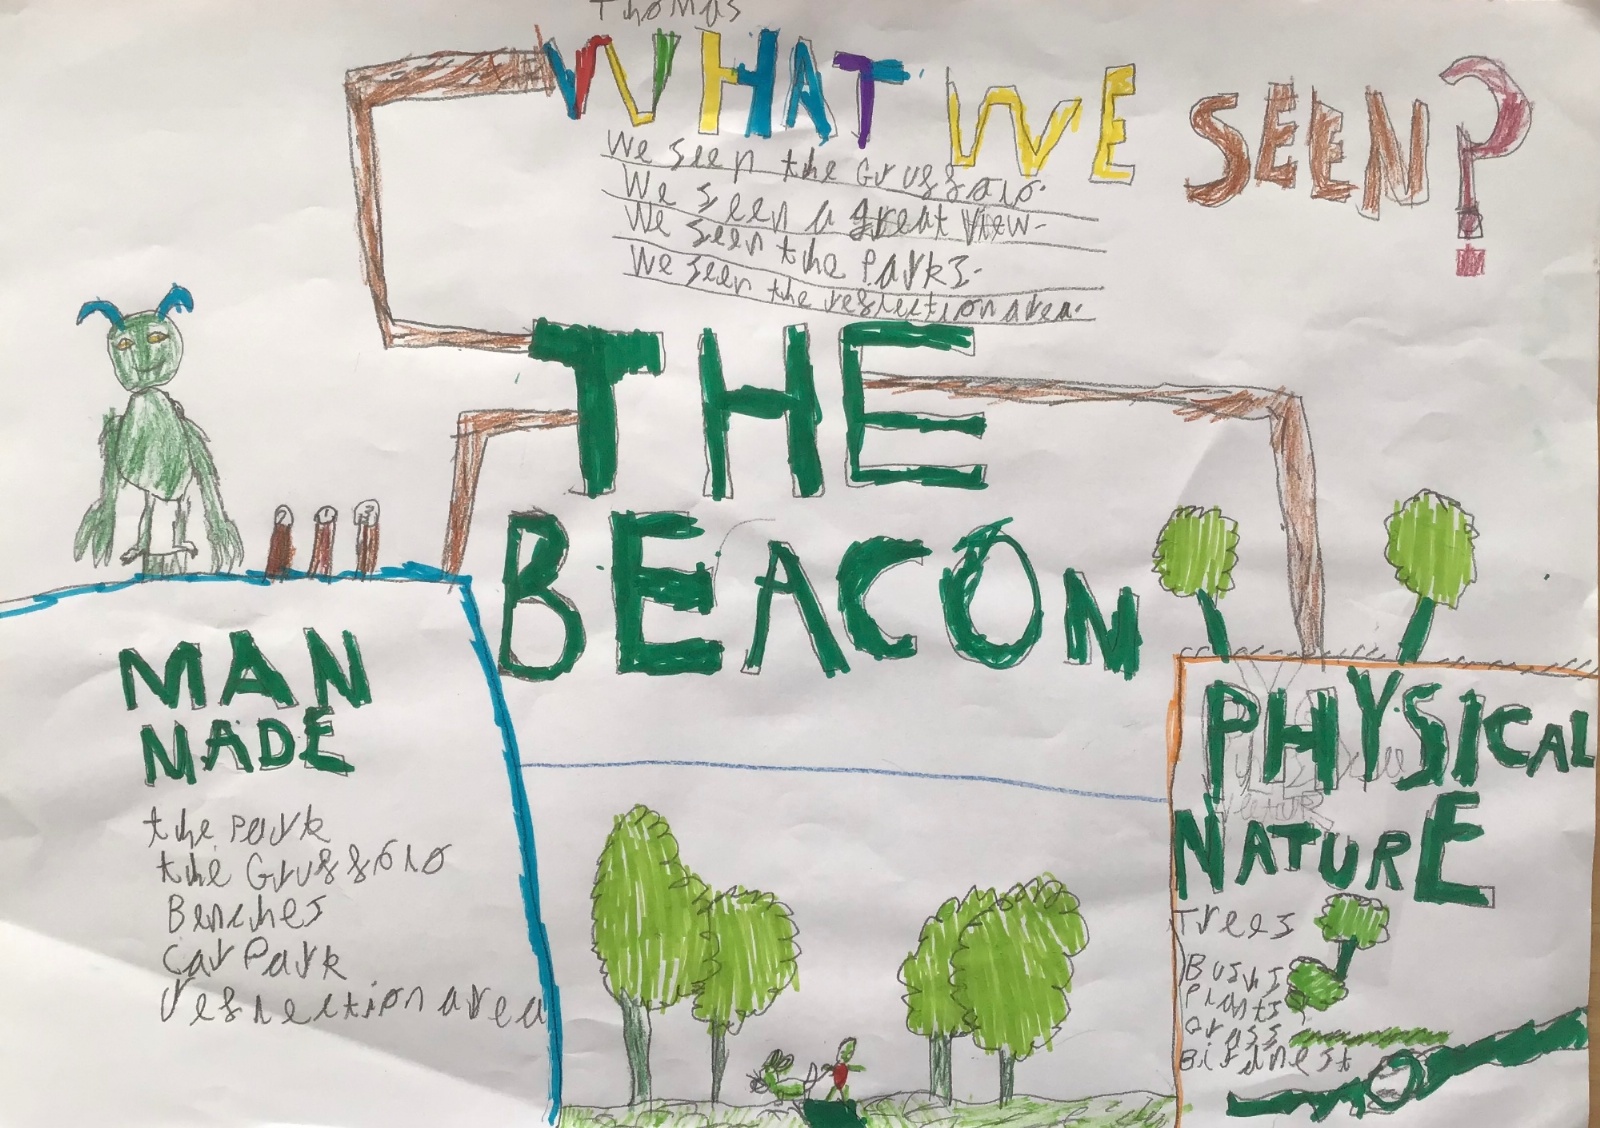 Thomas
WHAT WE SEEN?
We seen the Gruffalo.
We seen a great view.
We seen the Parks.
We seen the reflection area.
THE
BEACON
MAN
MADE
the park
the Gruffalo
Benches
car Park
reflection area
PHYSICAL
NATURE
Trees
Bushs
Plants
Grass
Birdnest